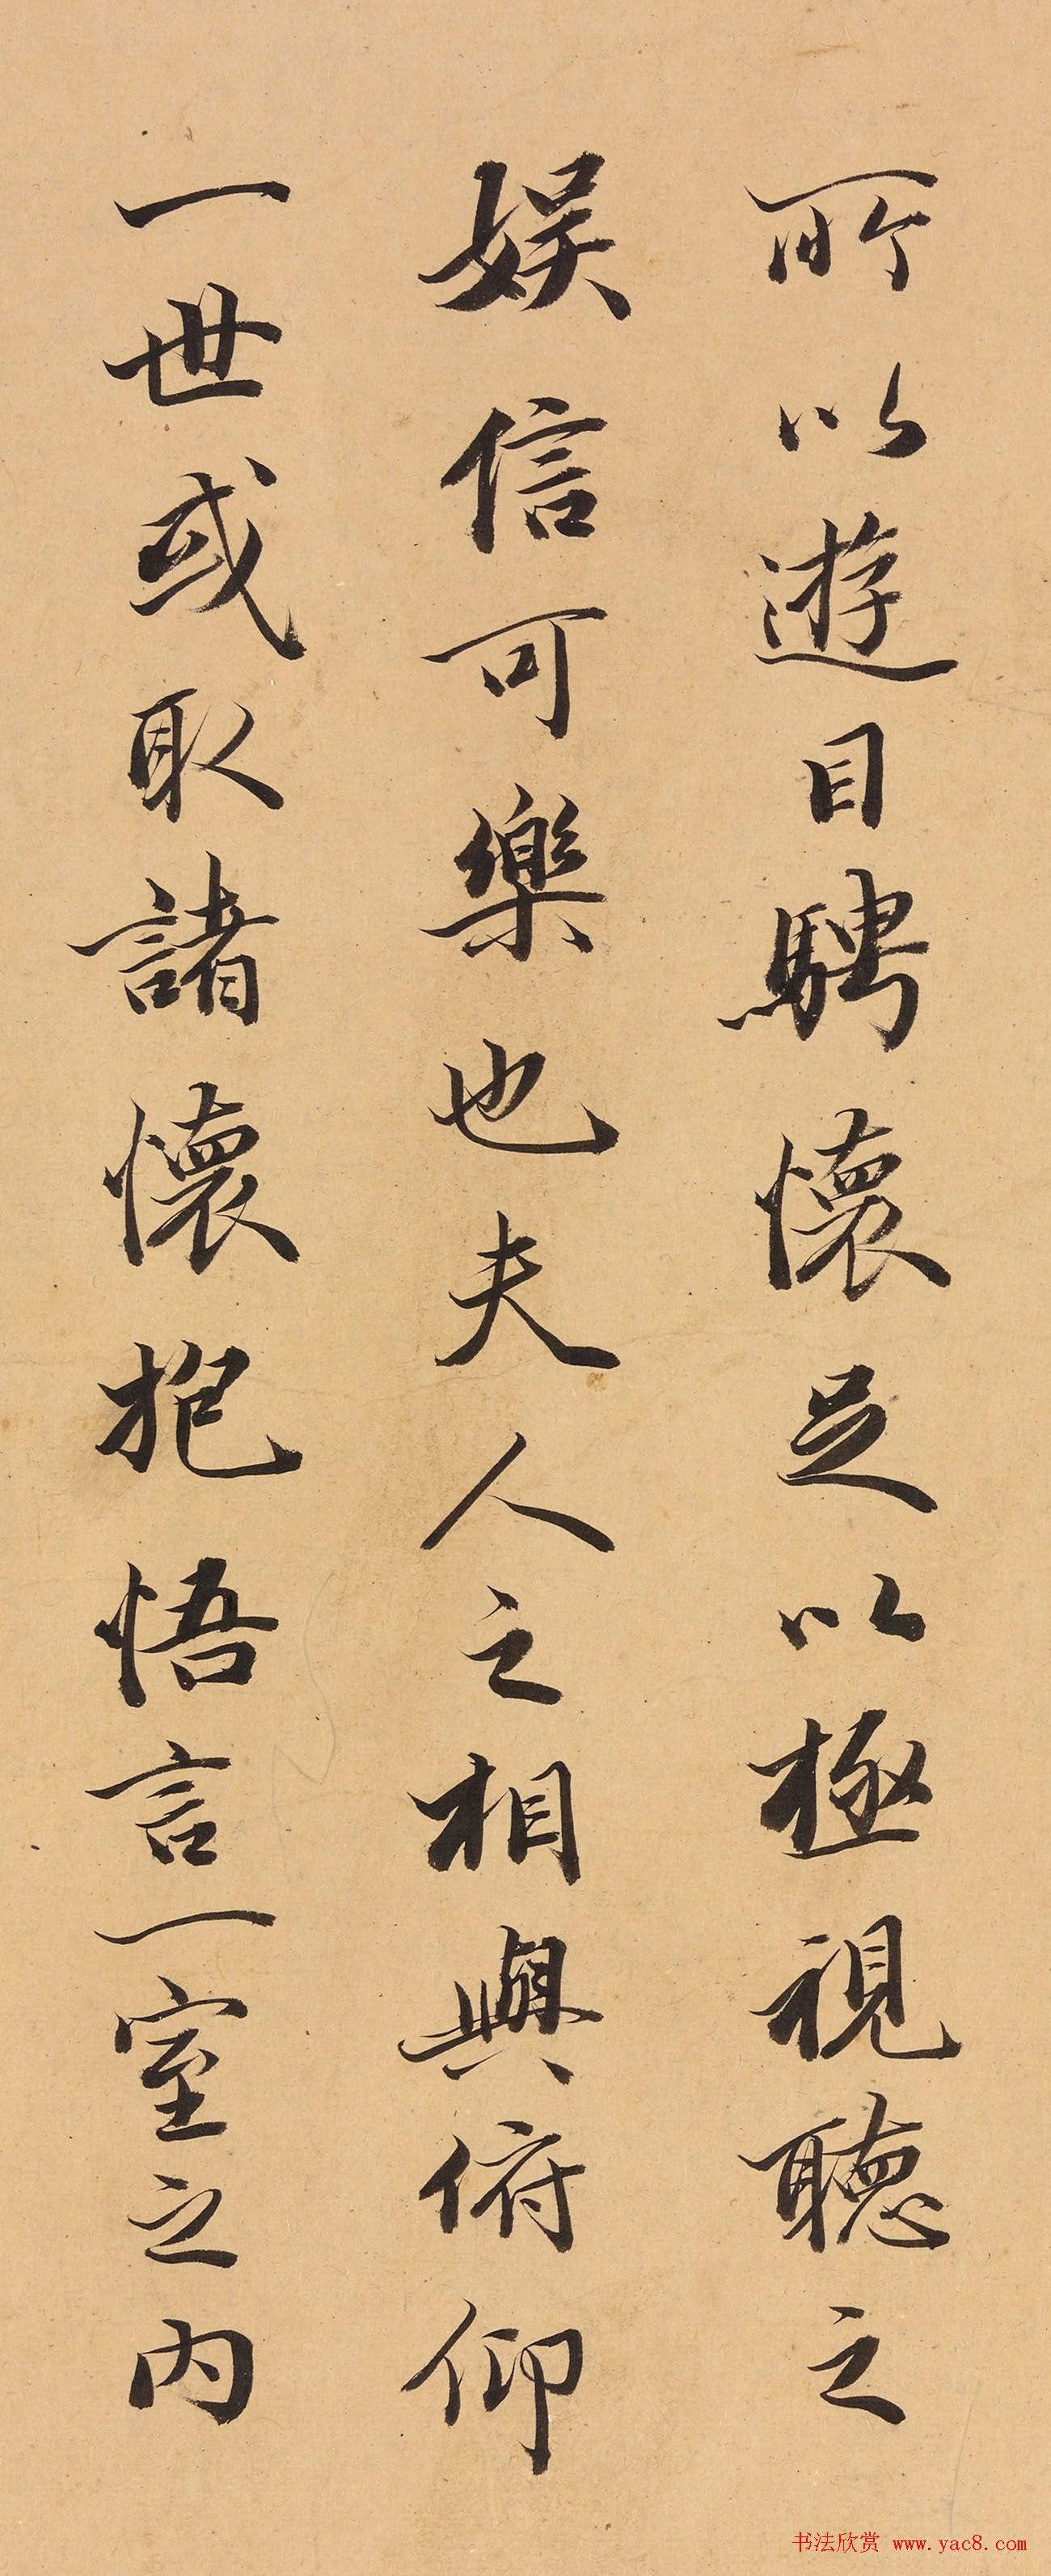 所以遊目騁懷足以極視聽之
娱信可樂也夫人之相與俯仰
一世或取諸懷抱悟言一室之内
书法欣赏 www.yac8.com